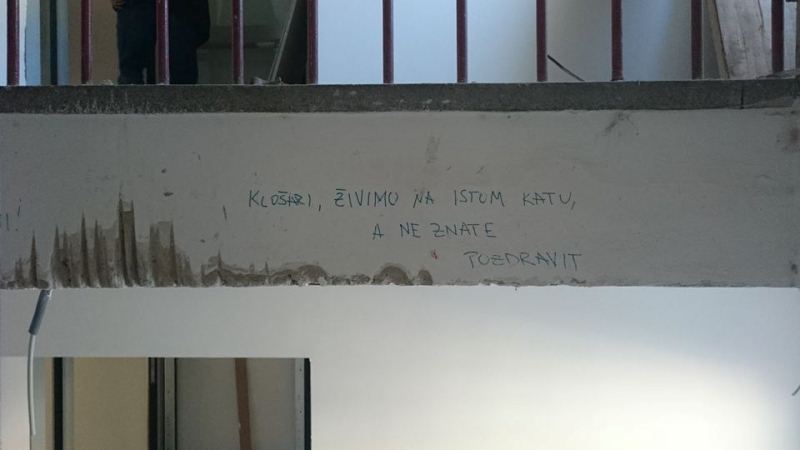 KLOŠARI, ŽIVIMO NA ISTOM KATU,
A NE ZNATE
POZDRAVIT